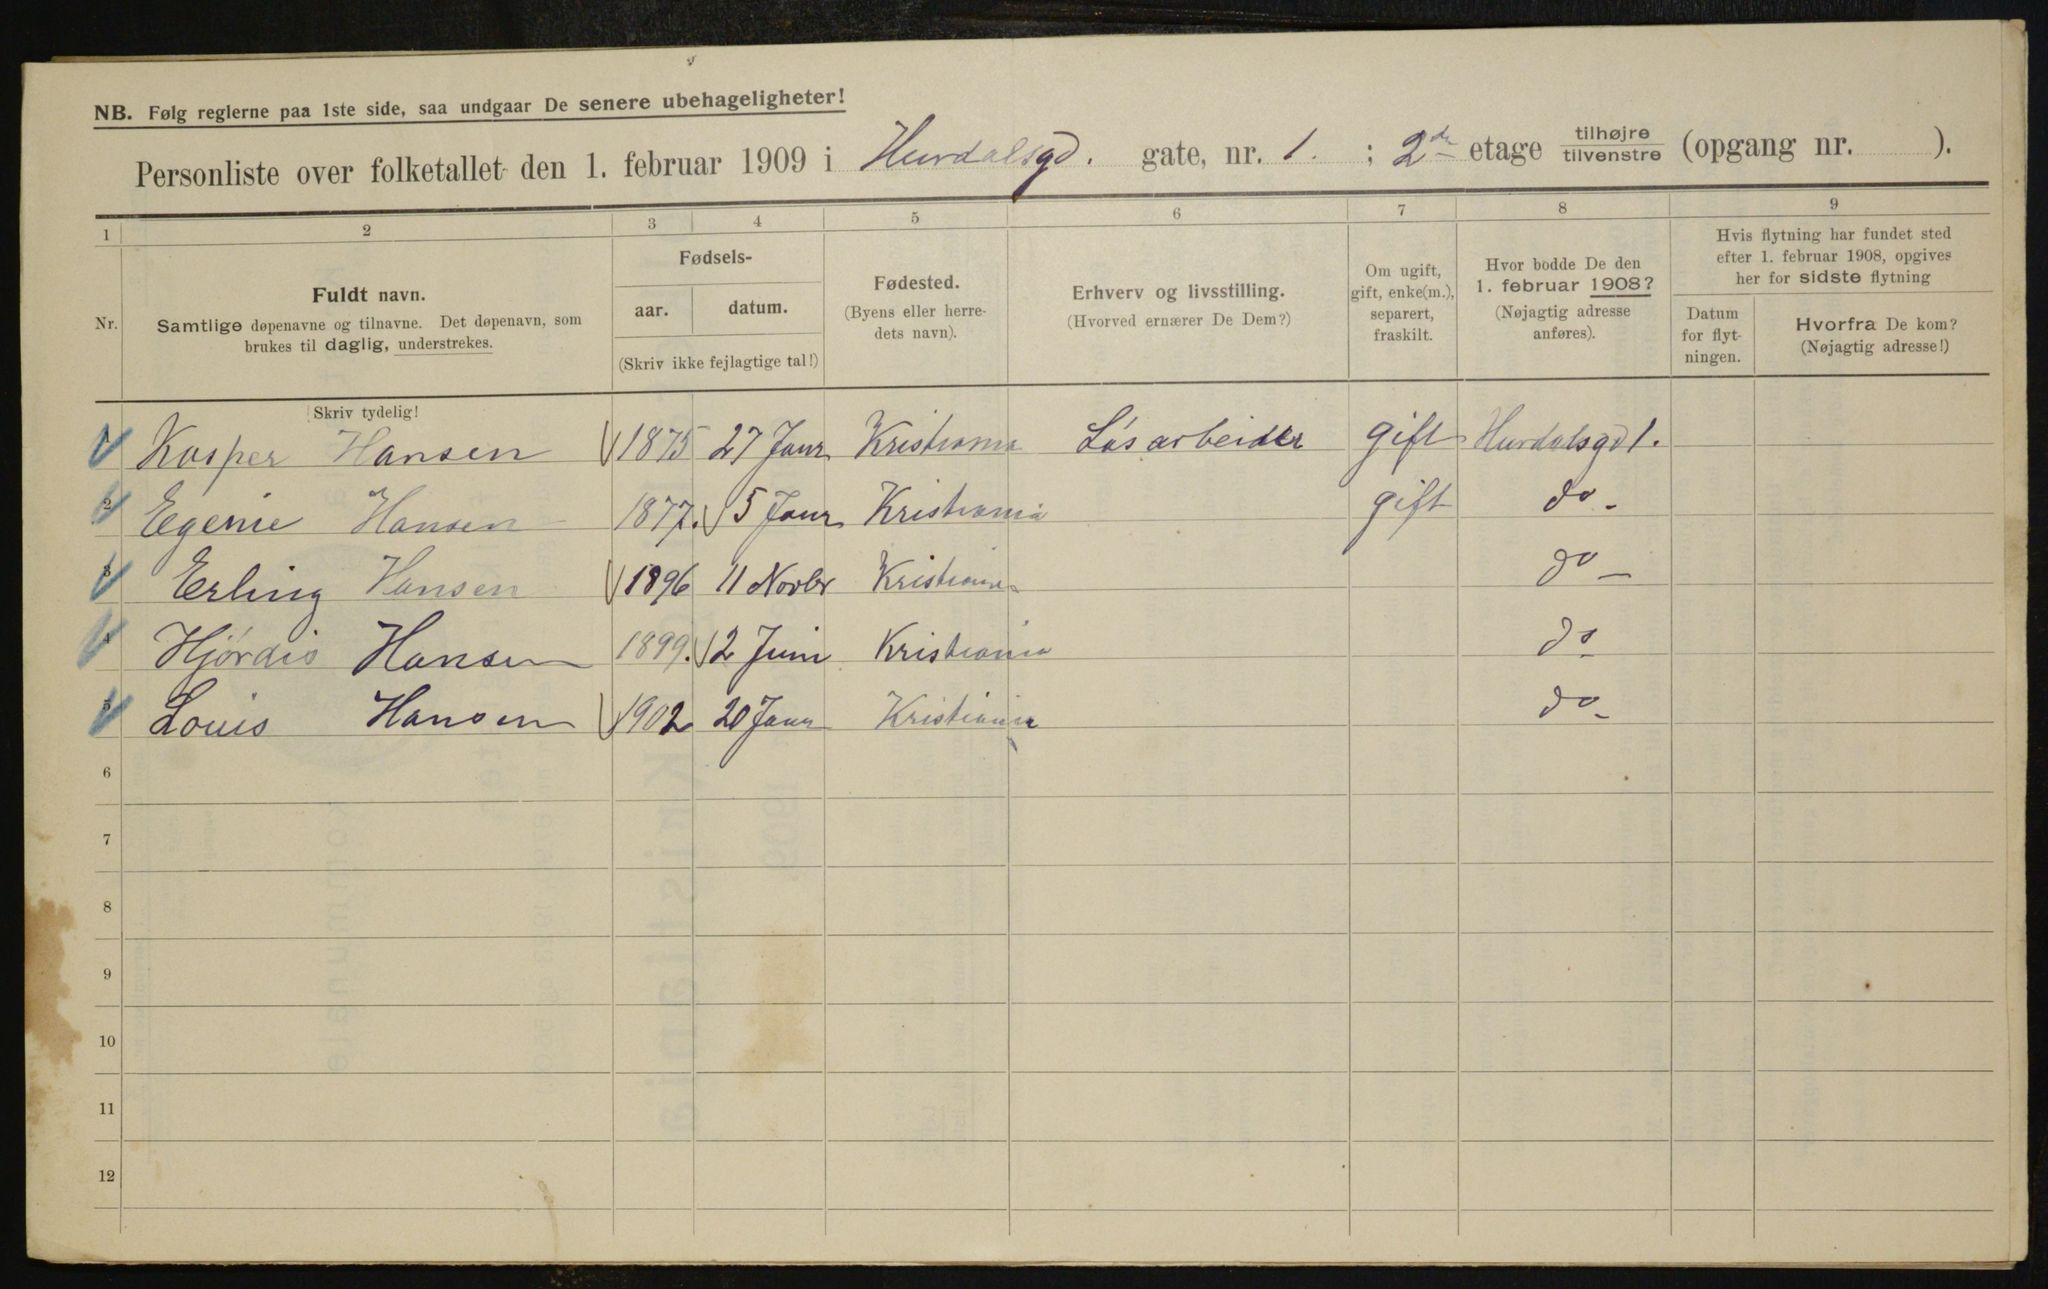 NB. Følg reglerne paa 1ste side, saa undgaar De senere ubehageligheter!
Personliste over folketallet den 1. februar 1909 i Hurdalsgd. gate, nr. 1. ; 2de etage tilhøjre / tilvenstre (opgang nr. ).
1 2 3 4 5 6 7 8 9
Nr.
Fuldt navn.
Samtlige døpenavne og tilnavne. Det døpenavn, som
brukes til daglig, understrekes.
Fødsels-
aar. datum.
(Skriv ikke fejlagtige tal!)
Fødested.
(Byens eller herre-
dets navn).
Erhverv og livsstilling.
(Hvorved ernærer De Dem?)
Om ugift,
gift, enke(m.),
separert,
fraskilt.
Hvor bodde De den
1. februar 1908?
(Nøjagtig adresse
anføres).
Hvis flytning har fundet sted
efter 1. februar 1908, opgives
her for sidste flytning
Datum
for flyt-
ningen.
Hvorfra De kom?
(Nøjagtig adresse!)
Skriv tydelig!
1 Kasper Hansen 1875 27 Janr Kristiania Løsarbeider gift Hurdalsgd 1.
2 Egenie Hansen 1877. 5 Janr Kristiania gift do -
3 Erling Hansen 1896 11 Novbr Kristiania do -
4 Hjørdis Hansen 1899. 2 Juni Kristiania do
5 Louis Hansen 1902 20 Janr Kristiania do -
6
7
8
9
10
11
12